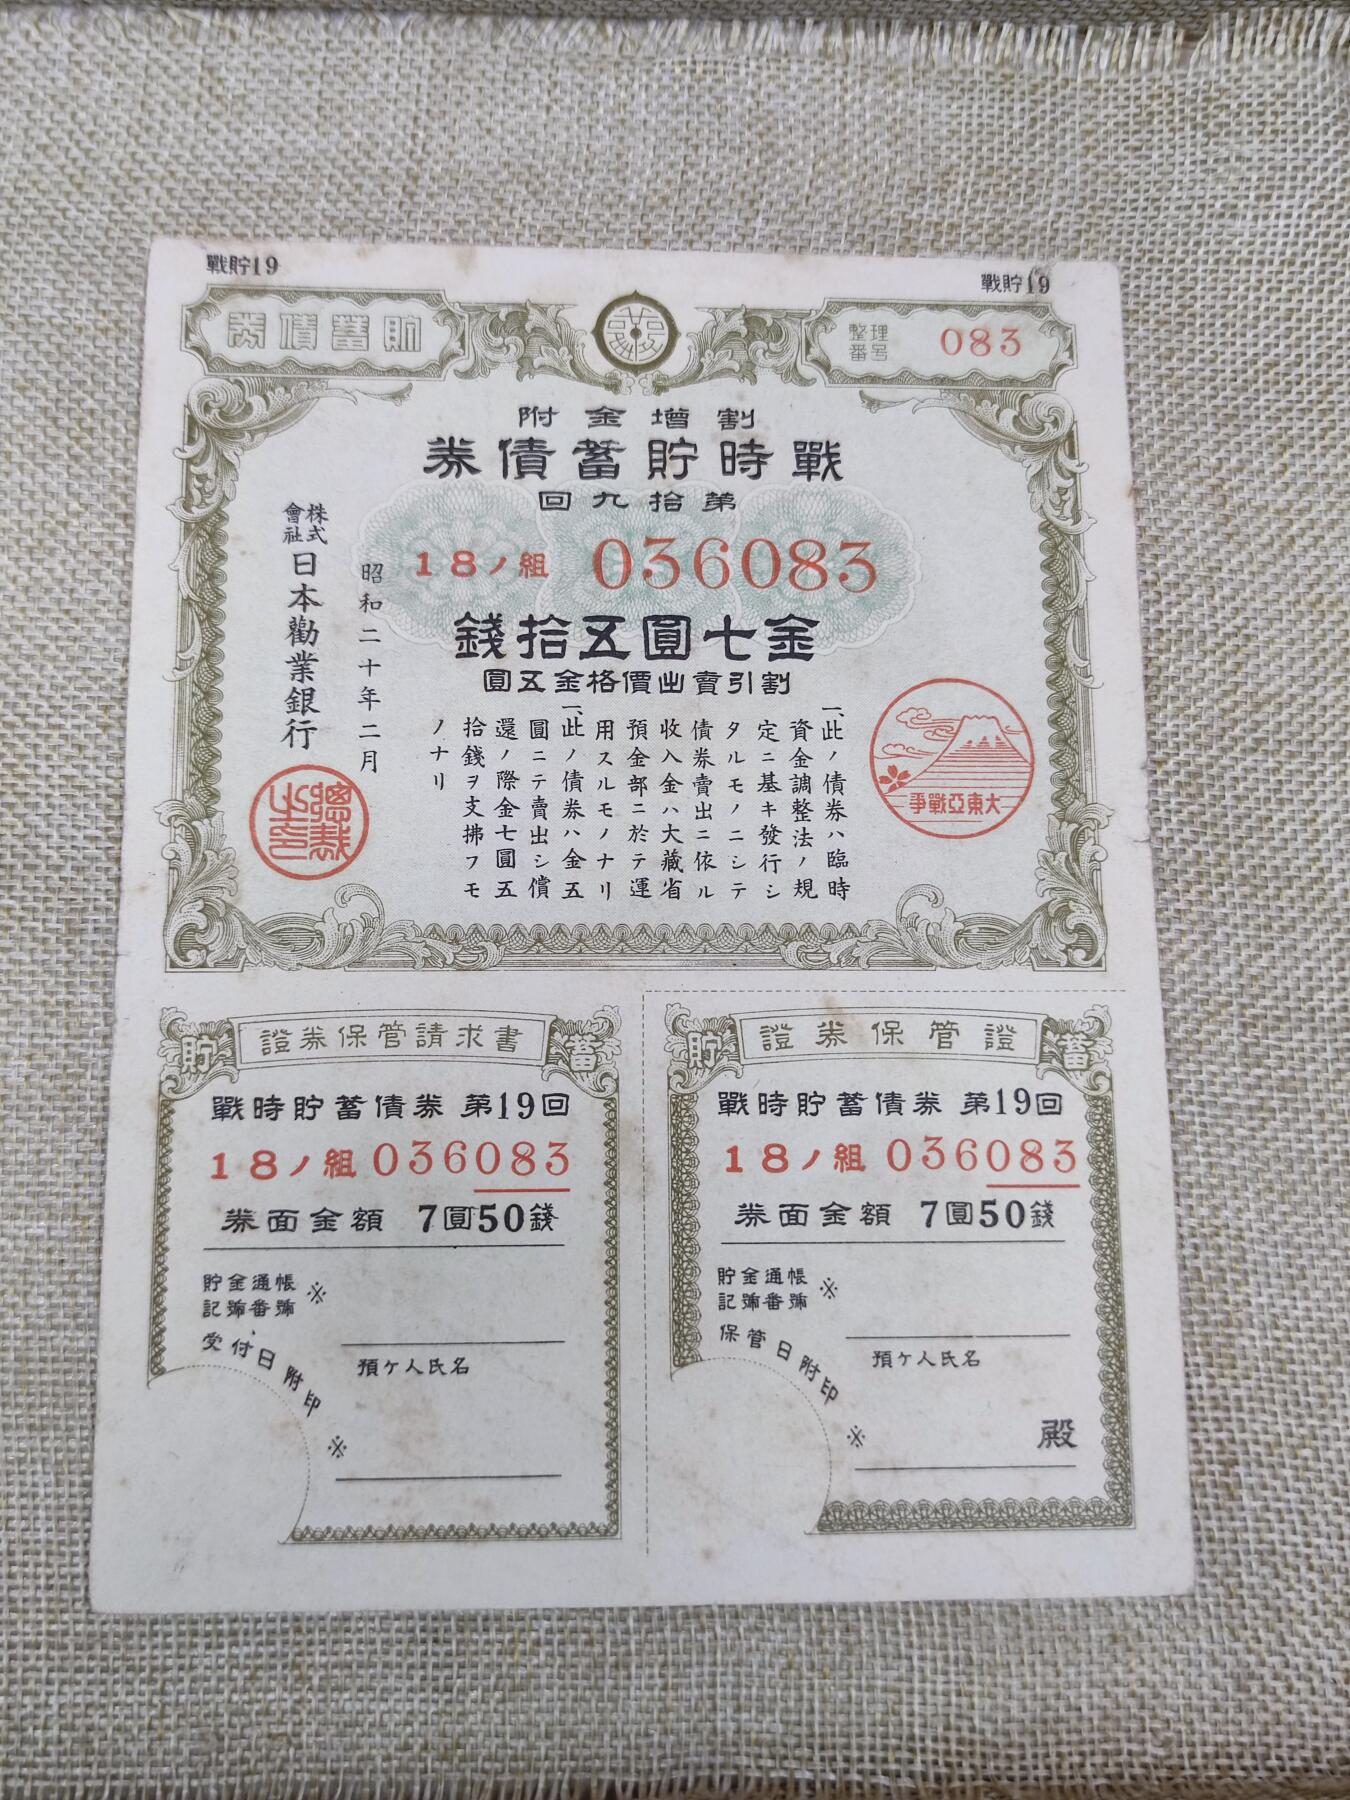 戰貯19
戰貯19
券債蓄貯
整理
番号
083
附金增割
券債蓄貯時戰
回九拾第
18ノ組 036083
錢拾五圓七金
圓五金格價出賣引割
一、此ノ債券ハ臨時
資金調整法ノ規
定ニ基キ發行シ
タルモノニシテ
債券賣出ニ依ル
收入金ハ大藏省
預金部ニ於テ運
用スルモノナリ
一、此ノ債券ハ金五
圓ニテ賣出シ償
還ノ際金七圓五
拾錢ヲ支拂フモ
ノナリ
昭和二十年二月
株式
會社
日本勸業銀行
總裁之印
爭戰亞東大
證券保管請求書
貯
蓄
戰時貯蓄債券 第19回
18ノ組 036083
券面金額 7圓50錢
貯金通帳
記號番號
※
受付日附印
預ケ人氏名
※
證券保管證
貯
蓄
戰時貯蓄債券 第19回
18ノ組 036083
券面金額 7圓50錢
貯金通帳
記號番號
※
保管日附印
預ケ人氏名
※
殿